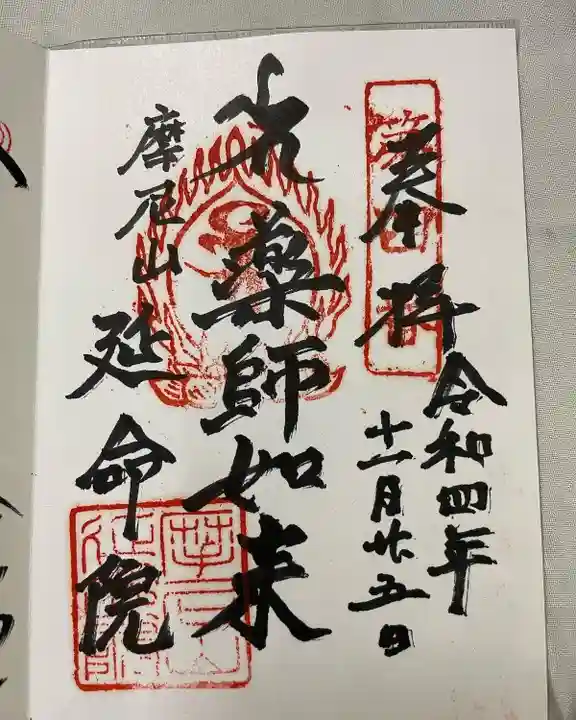 奉拝
令和四年
十一月廿五日
光薬師如来
摩尼山
延命院